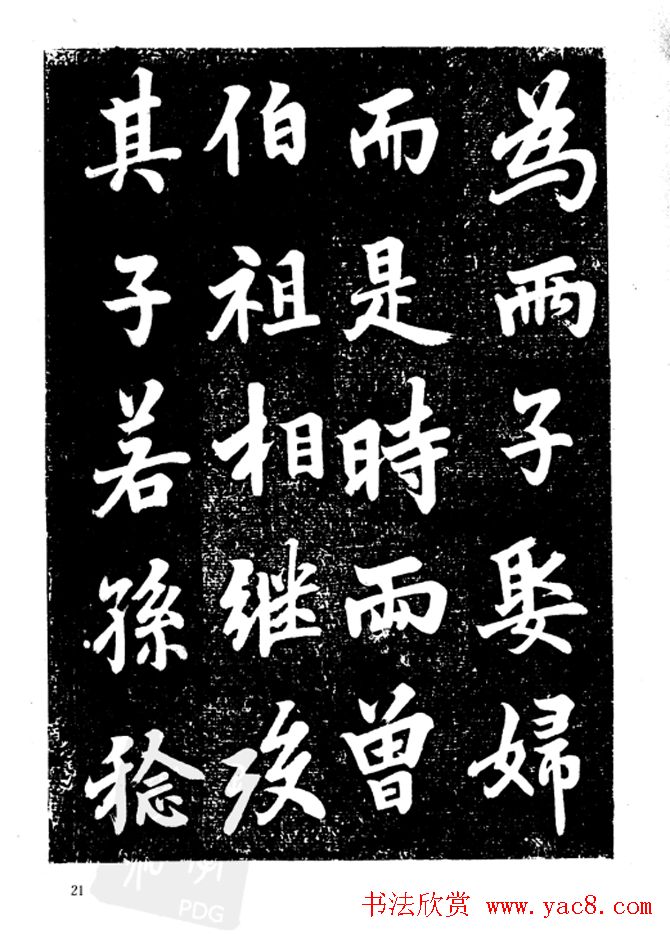 為兩子娶婦
而是時兩曾
伯祖相继殁
其子若孫稔
21
PDG
书法欣赏 www.yac8.com